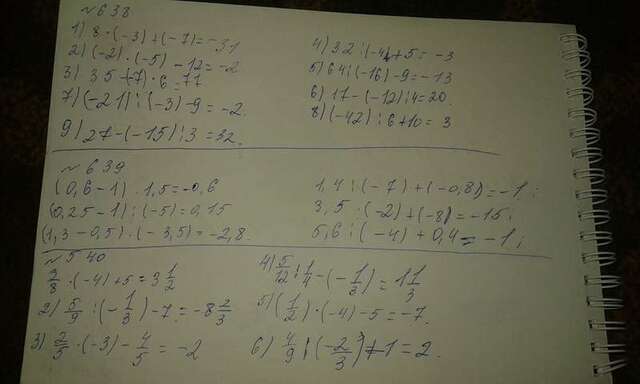 № 638
1) 8 · (-3) + (-7) = -31
2) (-2) · (-5) - 12 = -2
3) 35 -(-7) · 6 = 77
7) (-21) : (-3) - 9 = -2.
9) 27 - (-15) : 3 = 32.
4) 32 : (-4) + 5 = -3
5) 64 : (-16) - 9 = -13
6) 17 - (-12) : 4 = 20.
8) (-42) : 6 + 10 = 3
№ 639
(0,6 - 1) · 1,5 = -0,6
(0,25 - 1) : (-5) = 0,15
(1,3 - 0,5) · (-3,5) = -2,8.
1,4 : (-7) + (-0,8) = -1;
3,5 : (-2) + (-8) = -15;
5,6 : (-4) + 0,4 = -1;
№ 540
3/8 · (-4) + 5 = 3 1/2
2) 5/9 : (-1/3) - 7 = -8 2/3
3) 2/5 · (-3) - 4/5 = -2
4) 5/12 : 1/4 - (-1/3) = 1 1/3
5) (1/2) · (-4) - 5 = -7.
6) 4/9 : (-2/3) + 1 = 2.